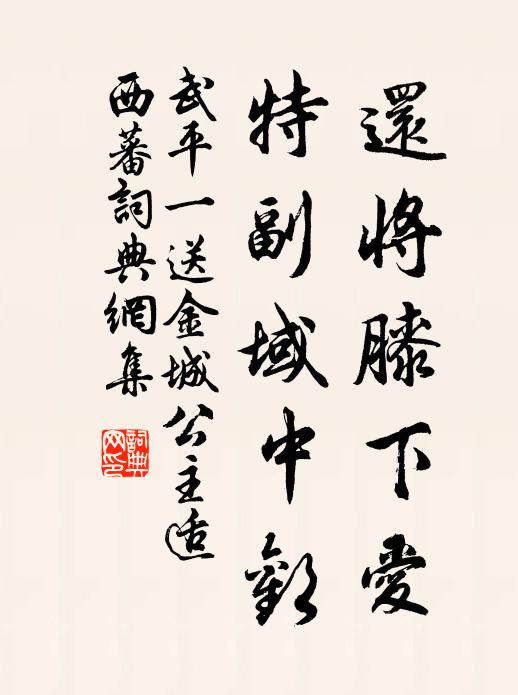 還將膝下愛
特副域中歡
武平一送金城公主适
西蕃詞典網集
詞典
网印